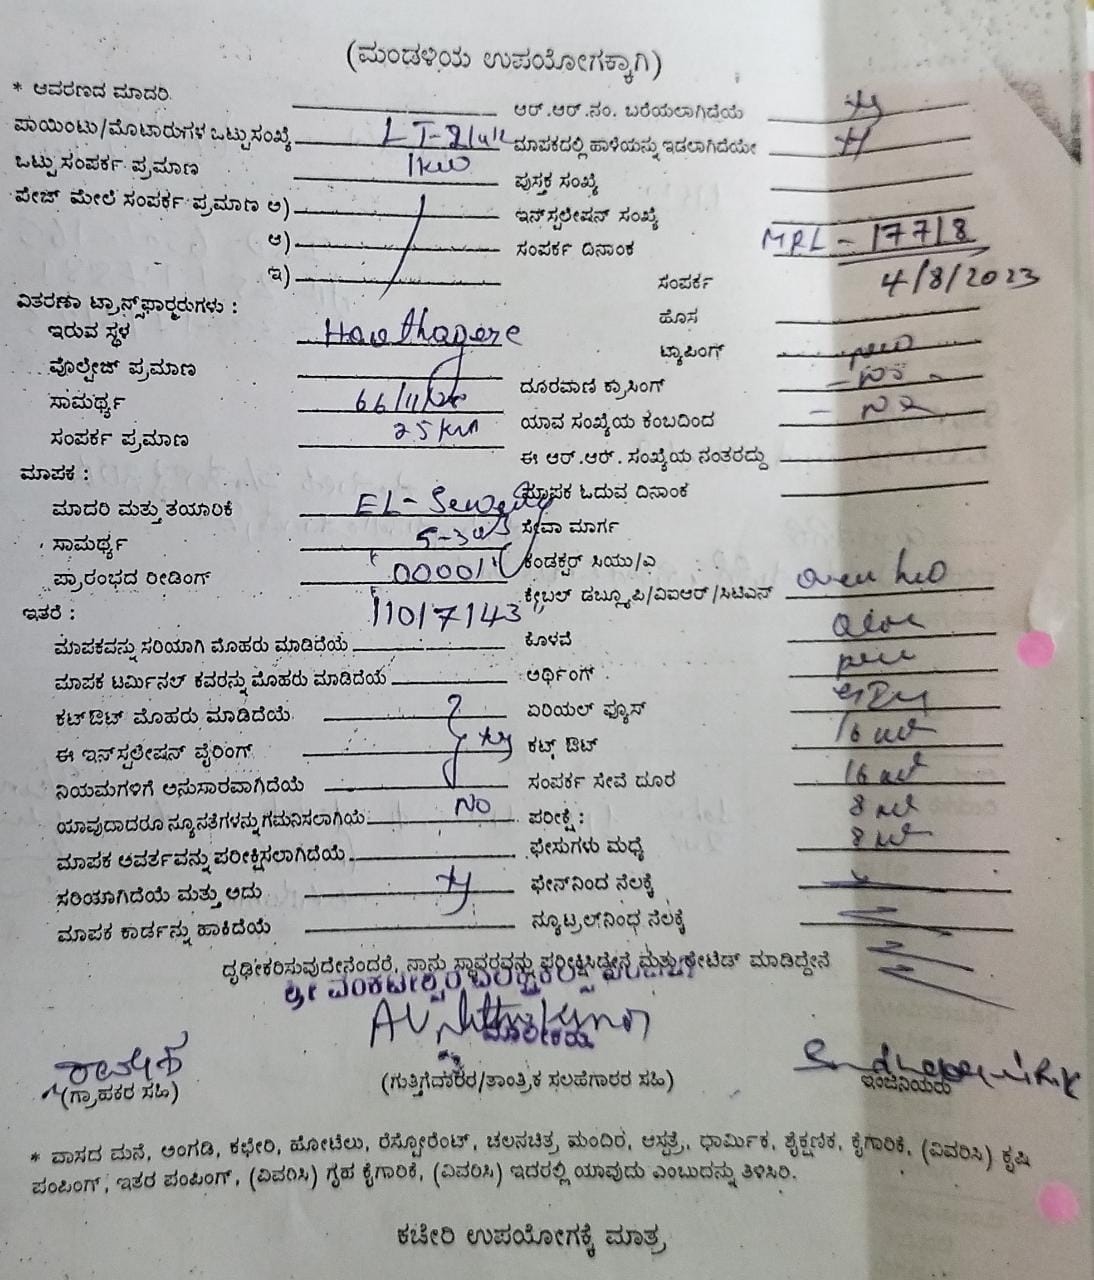 (ಮಂಡಳಿಯ ಉಪಯೋಗಕ್ಕಾಗಿ)
* ಆವರಣದ ಮಾದರಿ
ಪಾಯಿಂಟು/ಮೋಟಾರುಗಳ ಒಟ್ಟು ಸಂಖ್ಯೆ LT-2
ಒಟ್ಟು ಸಂಪರ್ಕ ಪ್ರಮಾಣ 1kw
ಪೇಜ್ ಮೇಲೆ ಸಂಪರ್ಕ ಪ್ರಮಾಣ ಅ)
ಆ)
ಇ)
ವಿತರಣಾ ಟ್ರಾನ್ಸ್‌ಫಾರ್ಮರುಗಳು :
ಇರುವ ಸ್ಥಳ Howthagere
ವೊಲ್ಟೇಜ್ ಪ್ರಮಾಣ
ಸಾಮರ್ಥ್ಯ 66/11
ಸಂಪರ್ಕ ಪ್ರಮಾಣ 25
ಮಾಪಕ :
ಮಾದರಿ ಮತ್ತು ತಯಾರಿಕೆ EL-
ಸಾಮರ್ಥ್ಯ 5-30
ಪ್ರಾರಂಭದ ರೀಡಿಂಗ್ 00001
ಇತರೆ : 11017143
ಮಾಪಕವನ್ನು ಸರಿಯಾಗಿ ಮೊಹರು ಮಾಡಿದೆಯೆ
ಮಾಪಕ ಟರ್ಮಿನಲ್ ಕವರನ್ನು ಮೊಹರು ಮಾಡಿದೆಯೆ
ಕಟ್‌ಔಟ್ ಮೊಹರು ಮಾಡಿದೆಯೆ
ಈ ಇನ್‌ಸ್ಟಲೇಷನ್ ವೈರಿಂಗ್
ನಿಯಮಗಳಿಗೆ ಅನುಸಾರವಾಗಿದೆಯೆ
ಯಾವುದಾದರೂ ನ್ಯೂನತೆಗಳನ್ನು ಗಮನಿಸಲಾಗಿಯೆ No
ಮಾಪಕ ಆವರ್ತವನ್ನು ಪರೀಕ್ಷಿಸಲಾಗಿದೆಯೆ
ಸರಿಯಾಗಿದೆಯೆ ಮತ್ತು ಅದು
ಮಾಪಕ ಕಾರ್ಡನ್ನು ಹಾಕಿದೆಯೆ
ಆರ್.ಆರ್.ನಂ. ಬರೆಯಲಾಗಿದೆಯೆ
ಮಾಪಕದಲ್ಲಿ ಹಾಳೆಯನ್ನು ಇಡಲಾಗಿದೆಯೇ
ಪುಸ್ತಕ ಸಂಖ್ಯೆ
ಇನ್‌ಸ್ಟಲೇಷನ್ ಸಂಖ್ಯೆ
ಸಂಪರ್ಕ ದಿನಾಂಕ MRL-17718
ಸಂಪರ್ಕ 4/8/2023
ಹೊಸ
ಟ್ಯಾಪಿಂಗ್
ದೂರವಾಣಿ ಕ್ರಾಸಿಂಗ್
ಯಾವ ಸಂಖ್ಯೆಯ ಕಂಬದಿಂದ
ಈ ಆರ್.ಆರ್. ಸಂಖ್ಯೆಯ ನಂತರದ್ದು
ಮಾಪಕ ಓದುವ ದಿನಾಂಕ
ಸೇವಾ ಮಾರ್ಗ
ಕಂಡಕ್ಟರ್ ಸಿಯು/ಎ :
ಕೇಬಲ್ ಡಬ್ಲ್ಯೂಪಿ/ವಿಐಆರ್/ಸಿಟಿಎಸ್
ಕೊಳವೆ
ಅರ್ಥಿಂಗ್
ಏರಿಯಲ್ ಫ್ಯೂಸ್
ಕಟ್ಸ್ ಔಟ್ 16
ಸಂಪರ್ಕ ಸೇವೆ ದೂರ 16
ಪರೀಕ್ಷೆ : 8
ಫೇಸುಗಳು ಮಧ್ಯೆ 8
ಫೇಸ್‌ನಿಂದ ನೆಲಕ್ಕೆ
ನ್ಯೂಟ್ರಲ್‌ನಿಂಧ ನೆಲಕ್ಕೆ
ದೃಢೀಕರಿಸುವುದೇನೆಂದರೆ, ನಾನು ಸ್ಥಾವರವನ್ನು ಪರೀಕ್ಷಿಸಿದ್ದೇನೆ ಮತ್ತು ರೇಟೆಡ್ ಮಾಡಿದ್ದೇನೆ
ಶ್ರೀ ವೆಂಕಟೇಶ್ವರ
ಮಾಲೀಕರು
(ಗ್ರಾಹಕರ ಸಹಿ)
(ಗುತ್ತಿಗೆದಾರರ/ತಾಂತ್ರಿಕ ಸಲಹೆಗಾರರ ಸಹಿ)
ಇಂಜಿನಿಯರು
* ವಾಸದ ಮನೆ, ಅಂಗಡಿ, ಕಛೇರಿ, ಹೋಟೆಲು, ರೆಸ್ಟೋರೆಂಟ್, ಚಲನಚಿತ್ರ, ಮಂದಿರ, ಆಸ್ಪತ್ರೆ, ಧಾರ್ಮಿಕ, ಶೈಕ್ಷಣಿಕ, ಕೈಗಾರಿಕೆ, (ವಿವರಿಸಿ) ಕೃಷಿ
ಪಂಪಿಂಗ್, ಇತರ ಪಂಪಿಂಗ್, (ವಿವರಿಸಿ) ಗೃಹ ಕೈಗಾರಿಕೆ, (ವಿವರಿಸಿ) ಇದರಲ್ಲಿ ಯಾವುದು ಎಂಬುದನ್ನು ತಿಳಿಸಿರಿ.
ಕಚೇರಿ ಉಪಯೋಗಕ್ಕೆ ಮಾತ್ರ